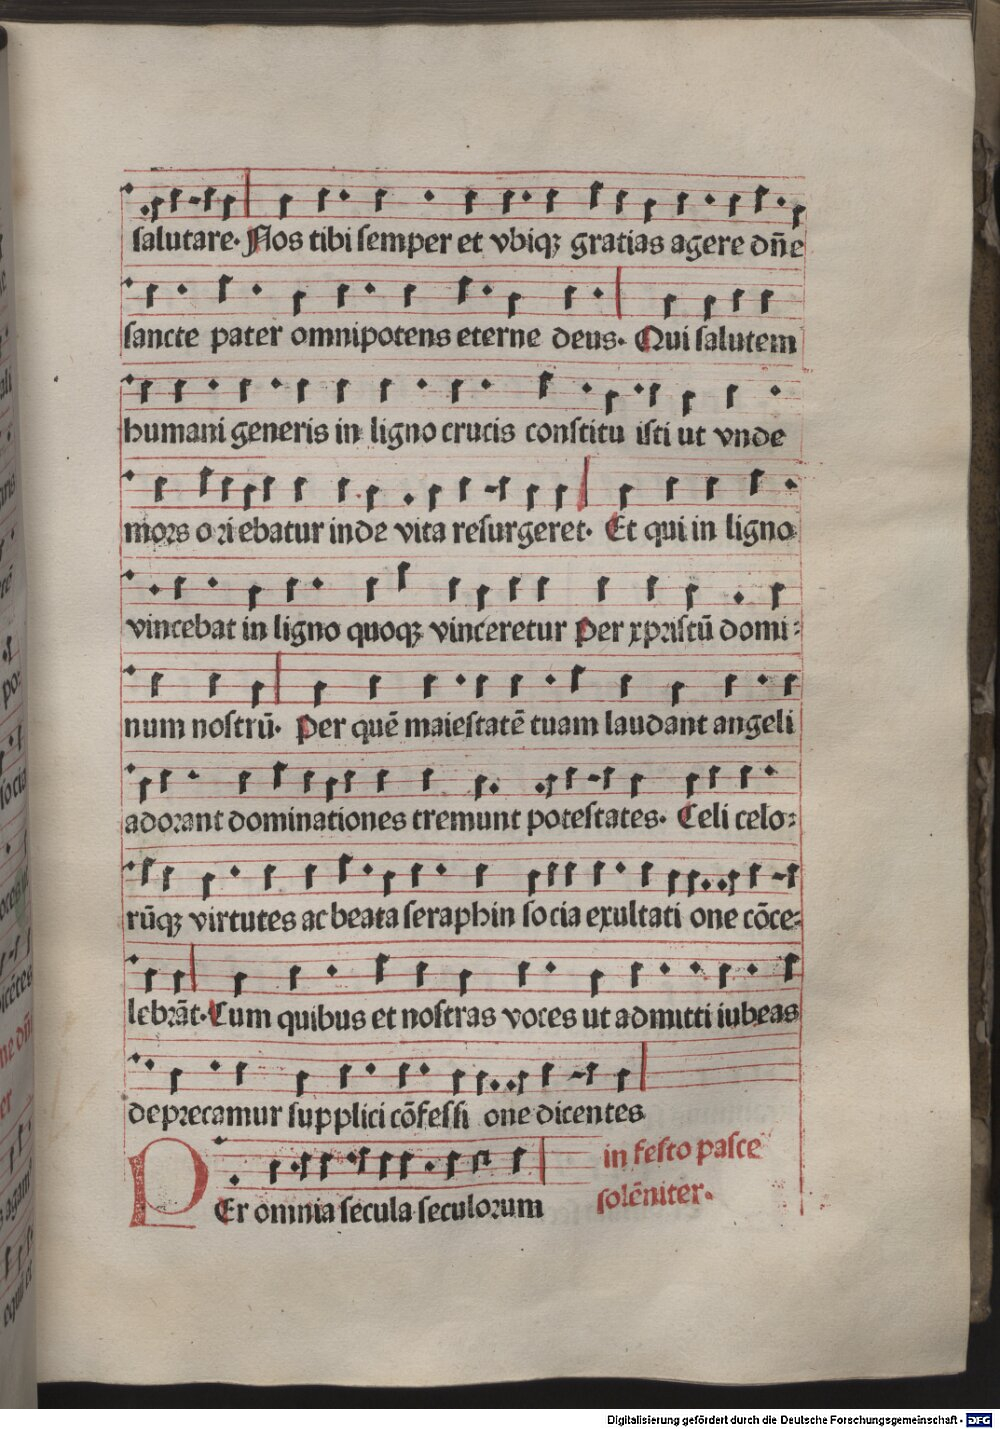 salutare. Nos tibi semper et vbiqꝫ gratias agere dn̄e
sancte pater omnipotens eterne deus. Qui salutem
humani generis in ligno crucis constitu isti ut vnde
mors o ri ebatur inde vita resurgeret. Et qui in ligno
vincebat in ligno quoqꝫ vinceretur per xpristū domi⸗
num nostrū. Per quē maiestatē tuam laudant angeli
adorant dominationes tremunt potestates. Celi celo⸗
rūqꝫ virtutes ac beata seraphin so cia exultati one cōce⸗
lebrāt. Cum quibus et nostras voces ut admitti iubeas
deprecamur supplici cōfessi one dicentes
PEr omnia secula seculorum
in festo pasce
solēniter.
Digitalisierung gefördert durch die Deutsche Forschungsgemeinschaft - DFG